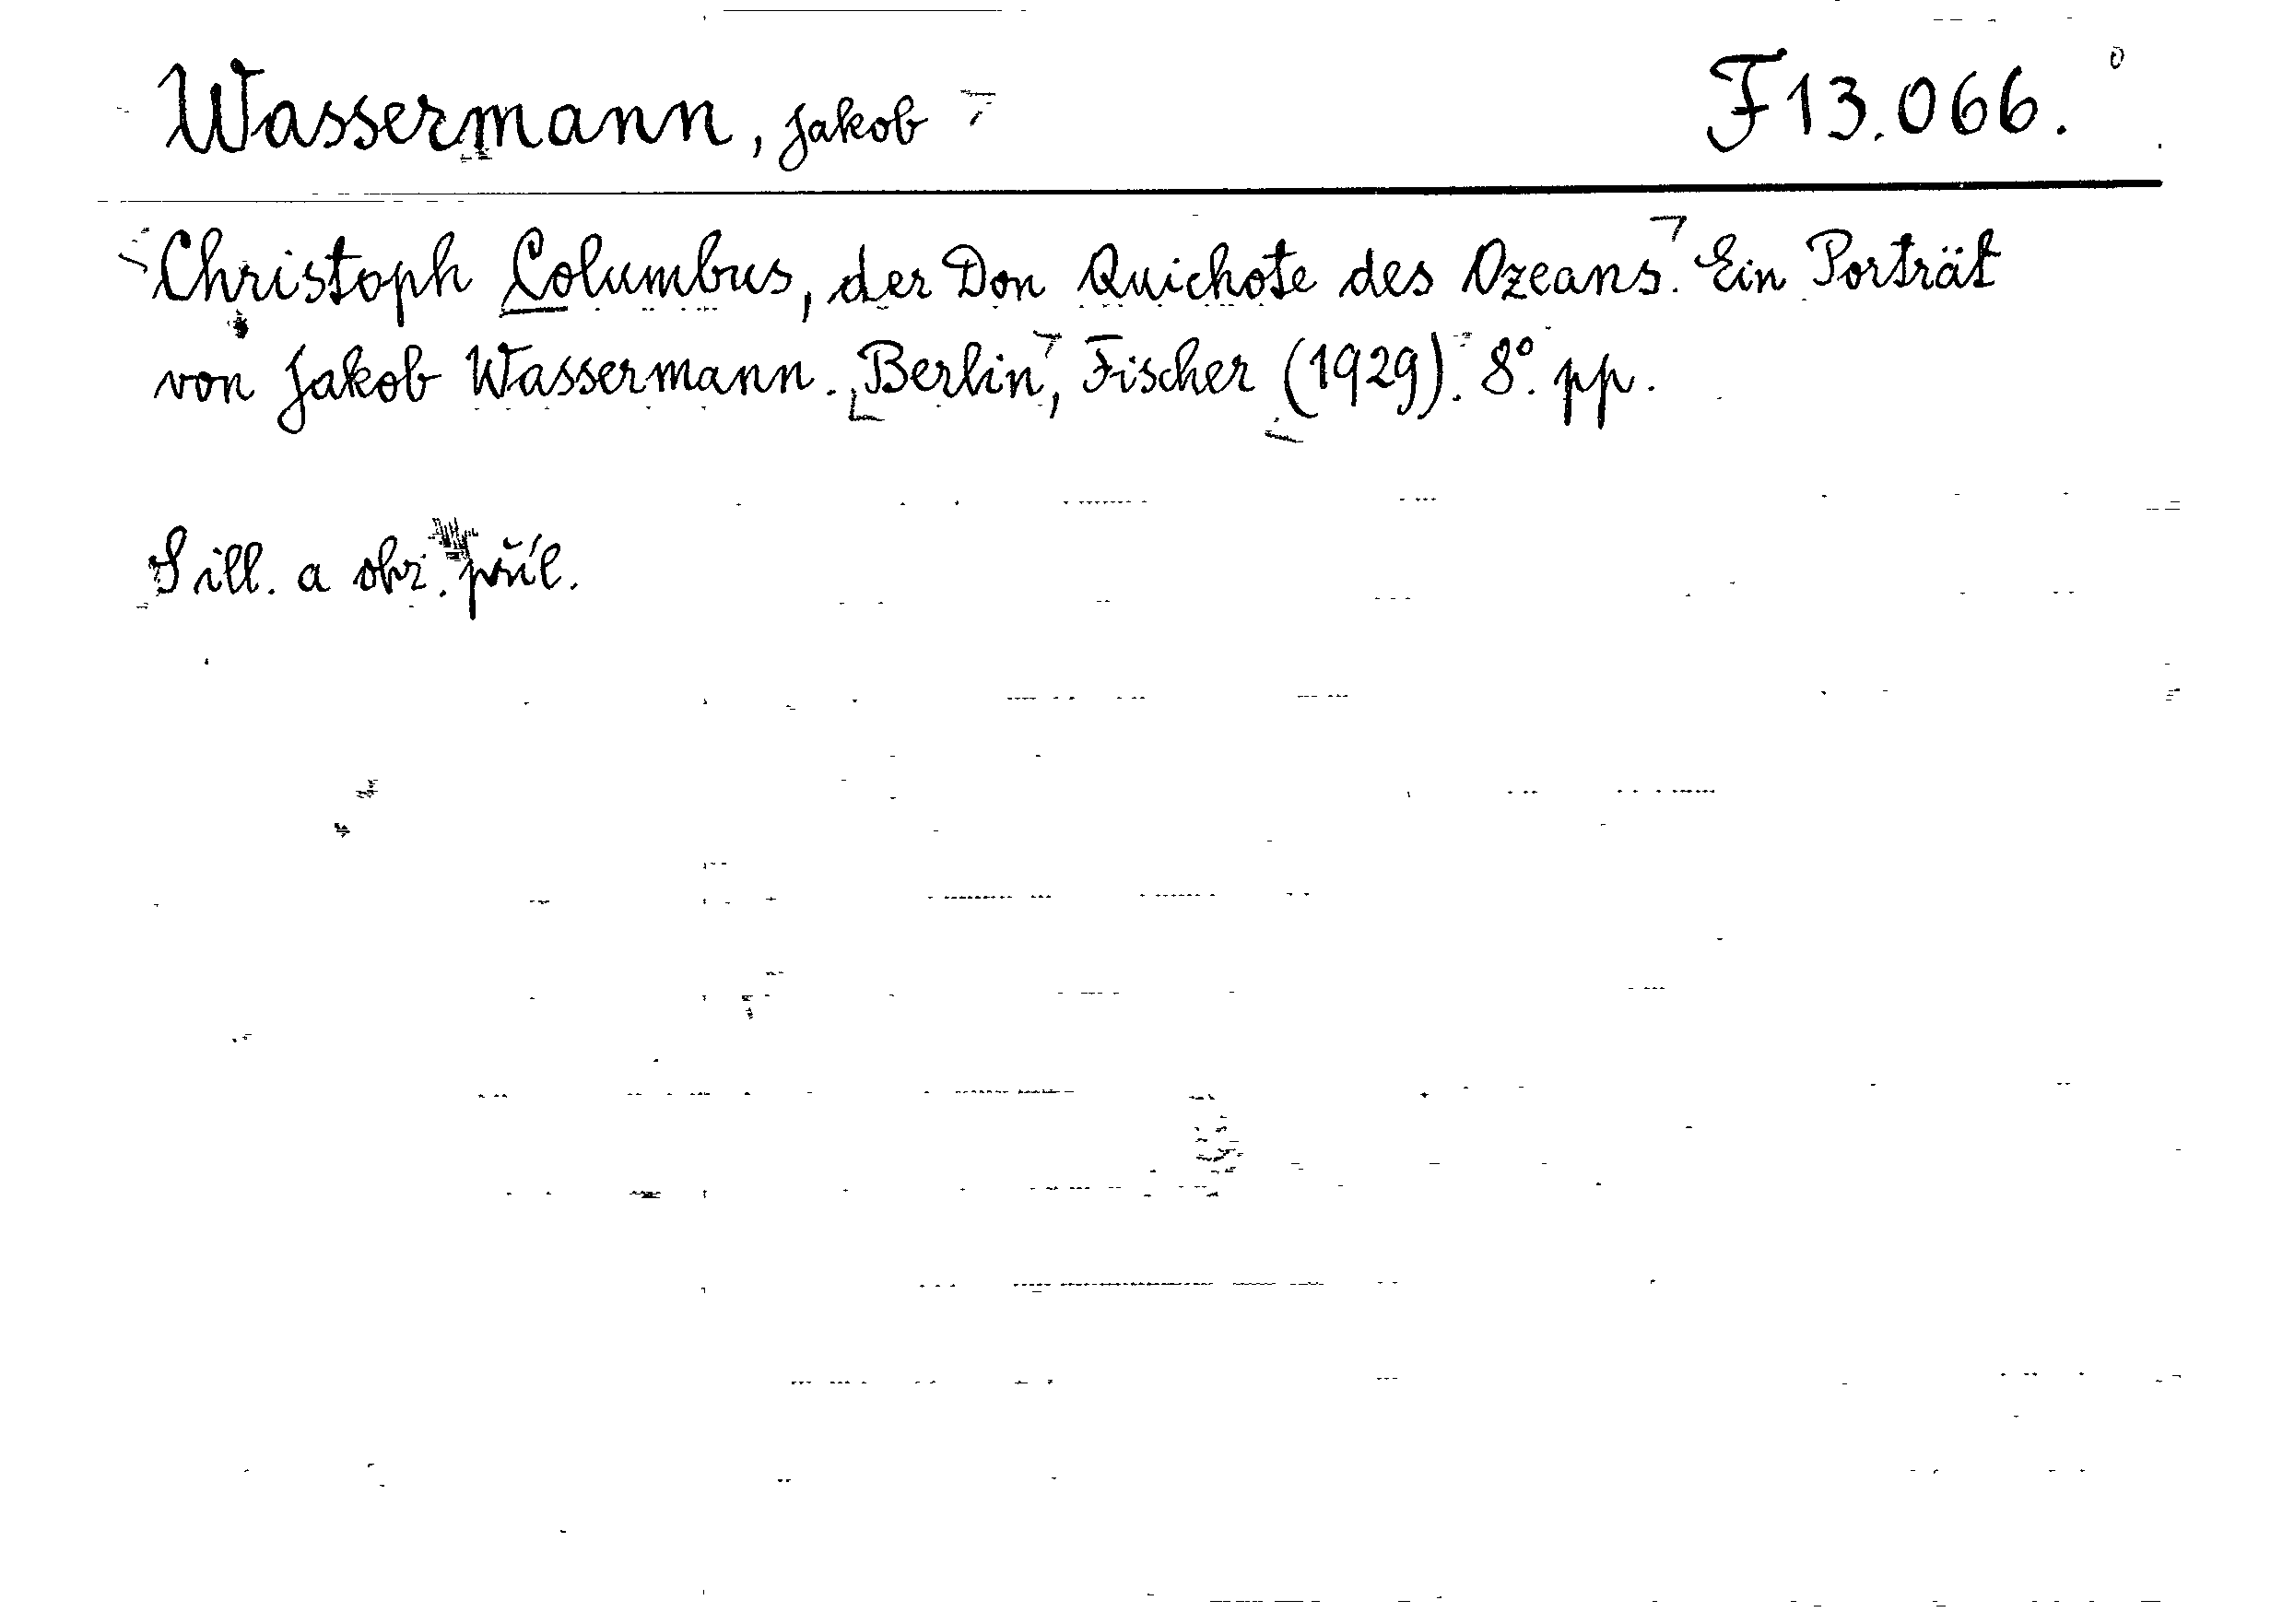 Wassermann, Jakob F 13.066.
Christoph Columbus, der Don Quichote des Ozeans. Ein Porträt
von Jakob Wassermann. Berlin, Fischer (1929). 8°. pp.
S ill. a obr. příl.